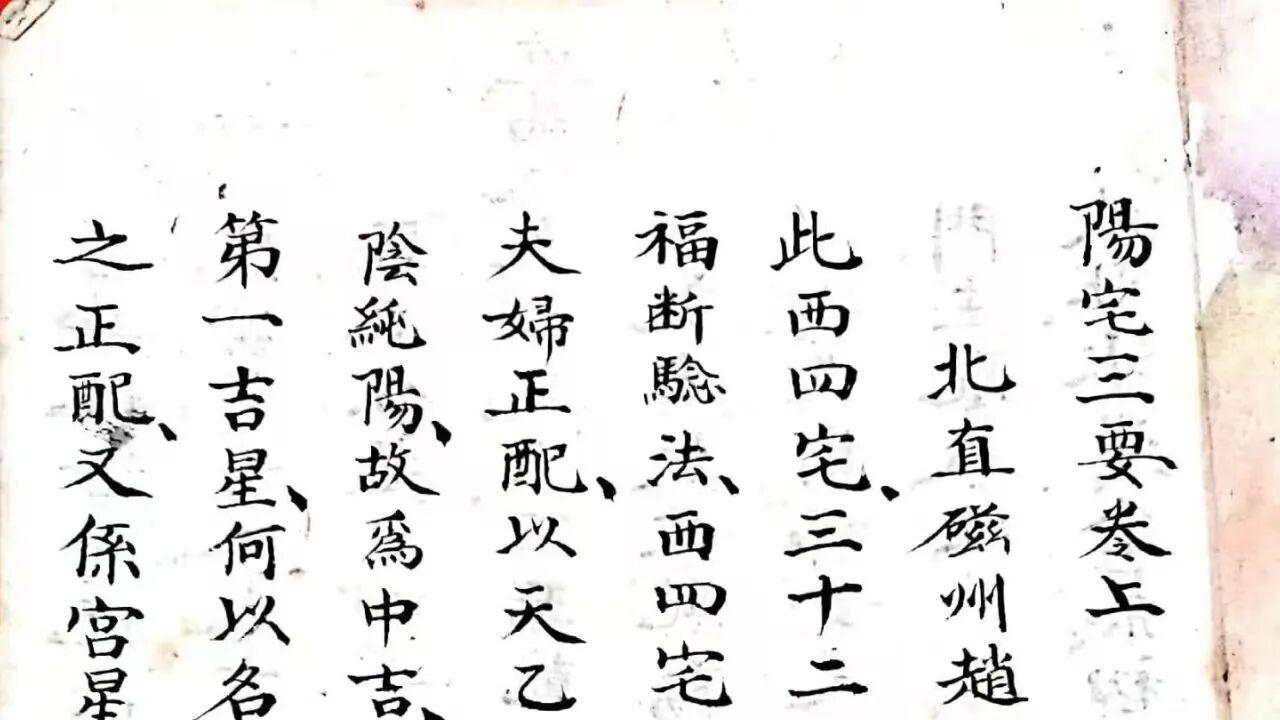 陽宅三要卷上
北直磁州趙
此西四宅、三十二
福断驗法、西四宅
夫婦正配、以天乙
陰純陽、故爲中吉、
第一吉星、何以名
之正配、又係宫星